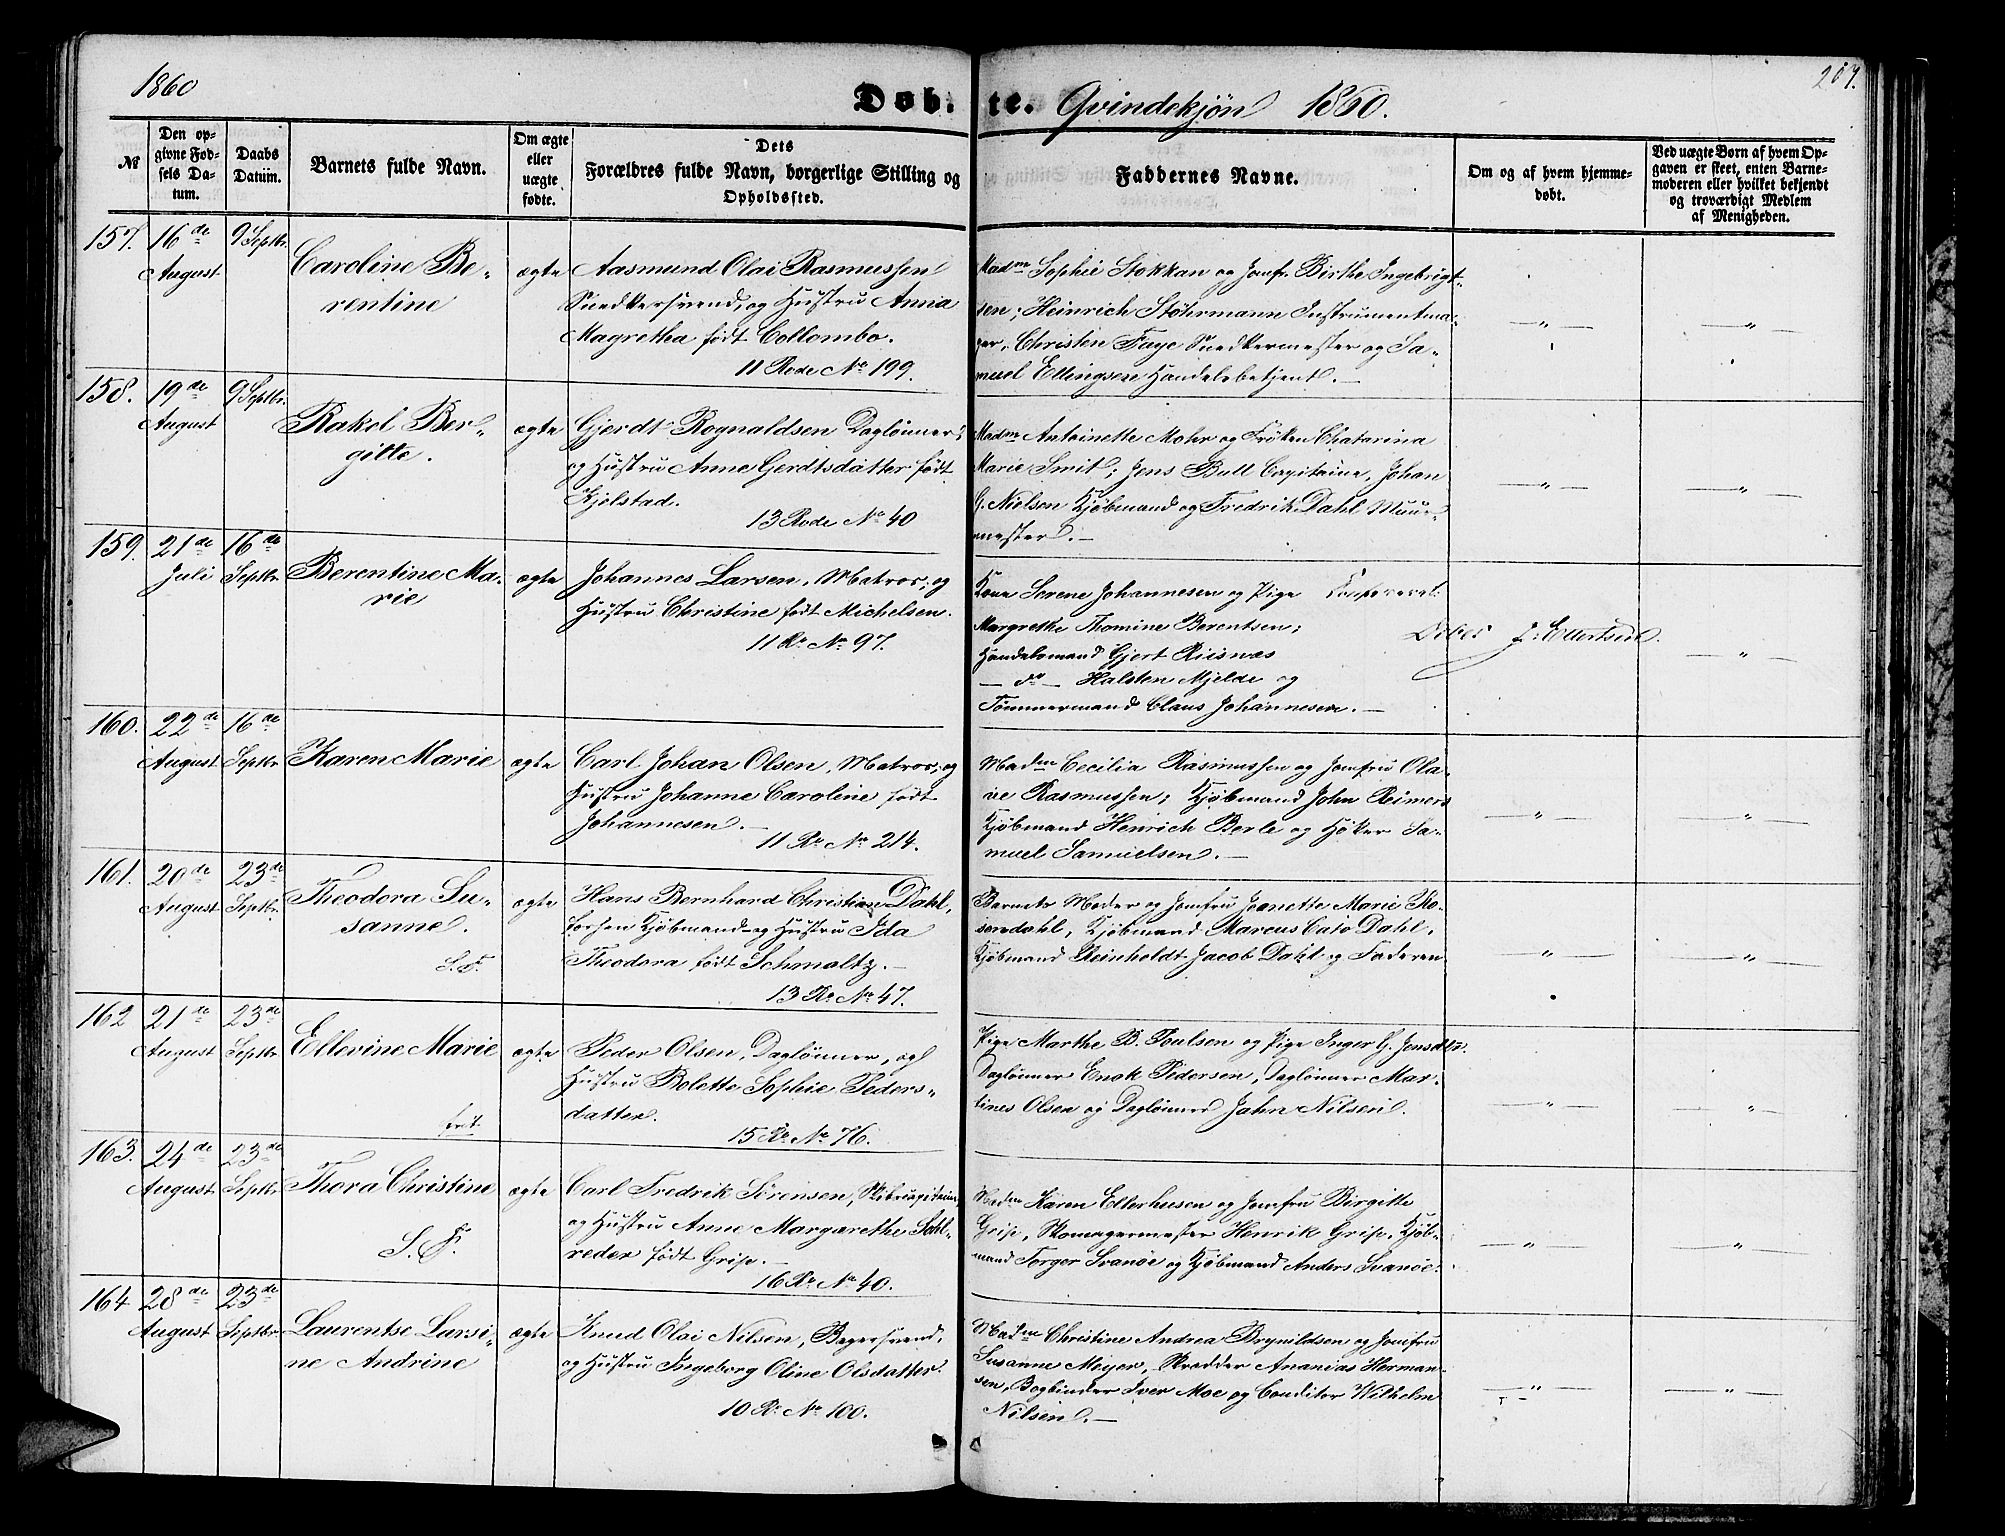 1860
Døb. te. Qvindekjøn 1860.
207.
№
Den op-
givne Fød-
sels Da-
tum.
Daabs
Datum.
Barnets fulde Navn.
Om ægte
eller
uægte
fødte.
Dets
Forældres fulde Navn, borgerlige Stilling og
Opholdssted.
Faddernes Navne.
Om og af hvem hjemme-
døbt.
Ved uægte Børn af hvem Op-
gaven er skeet, enten Barne-
moderen eller hvilket bekjendt
og troværdigt Medlem
af Menigheden.
157. 16de
August
9 Septbr.
Caroline Be-
rentine
ægte
Aasmund Olai Rasmussen
Snedkersvend, og Hustru Anna
Magretha født Collombo.
11 Rode No 199.
Madm Sophie Stokkan og Jomfr. Birthe Ingebrigt-
sen; Heinrich Støhrmann Instrumentma-
ger, Christen Faye Snedkermester og Sa-
muel Ellingsen Handelsbetjent.
158. 19de
August
9 Septbr.
Rakel Ber-
gitte.
ægte
Gjerdt Rognaldsen Daglønner,
og Hustru Anne Gerdtsdatter født
Kjelstad.
13 Rode No 40
Madm Antoinette Mohr og Frøken Chatarina
Marie Smit; Jens Bull Capitaine, Johan
G. Nielsen Kjøbmand og Fredrik Dahl Muur-
mester.
159. 21de
Juli
16de
Septbr
Berentine Ma-
rie
ægte
Johannes Larsen, Matros, og
Hustru Christine født Michelsen.
11 Ro No 97.
Kone Serene Johannesen og Pige
Margrethe Thomine Berentsen;
Handelsmand Gjert Riisnæs
— do — Halsten Mjelde og
Tømmermand Claus Johannesen.
160. 22de
August
16de
Septbr
Karen Marie
ægte
Carl Johan Olsen, Matros, og
Hustru Johanne Caroline født
Johannesen.
11 Ro No 214.
Madm Cecilia Rasmussen og Jomfru Ola-
ve Rasmussen; Kjøbmand John Reimers
Kjøbmand Henrich Berle og Høker Sa-
muel Samuelsen.
161. 20de
August
23de
Septbr.
Theodora Su-
sanne.
S. F.
ægte
Hans Bernhard Christian Dahl,
Kjøbmand og Hustru Ida
Theodora født Schmaltz.
13 Ro No 47.
Barnets Moder og Jomfru Jeanette Marie Ro-
sendahl, Kjøbmand Marcus Cato Dahl,
Kjøbmand Reinholdt Jacob Dahl og Faderen
162 21de
August
23de
Septbr
Ellevine Marie
frit.
ægte
Peder Olsen, Daglønner, og
Hustru Bolette Sophie Peders-
datter.
15 Ro No 76.
Pige Marthe B. Poulsen og Pige Inger G. Jensdtr.
Daglønner Enok Pedersen, Daglønner Mar-
tines Olsen og Daglønner Jahn Nilsen.
163. 24de
August
23de
Septbr
Thora Christine
S. F.
ægte
Carl Fredrik Sørensen, Skibscapitaine,
og Hustru Anne Margarethe Schl-
reder født Grip.
16 Ro No 40.
Madm Karen Ellerhusen og Jomfru Birgitte
Grip, Skomagermester Henrik Grip, Kjøb-
mand Torger Svanøe og Kjøbmand Anders Svanøe.
164 28de
August
23de
Septbr
Laurentse Larsi-
ne Andrine
ægte
Knud Olai Nilsen, Bagersvend,
og Hustru Ingeborg Oline Olsdatter.
10 Ro No 100.
Madm Christine Andrea Brynildsen og Jomfru
Susanne Meyer, Skrædder Ananias Herman-
sen, Bogbinder Iver Moe og Conditor Wilhelm
Nilsen.